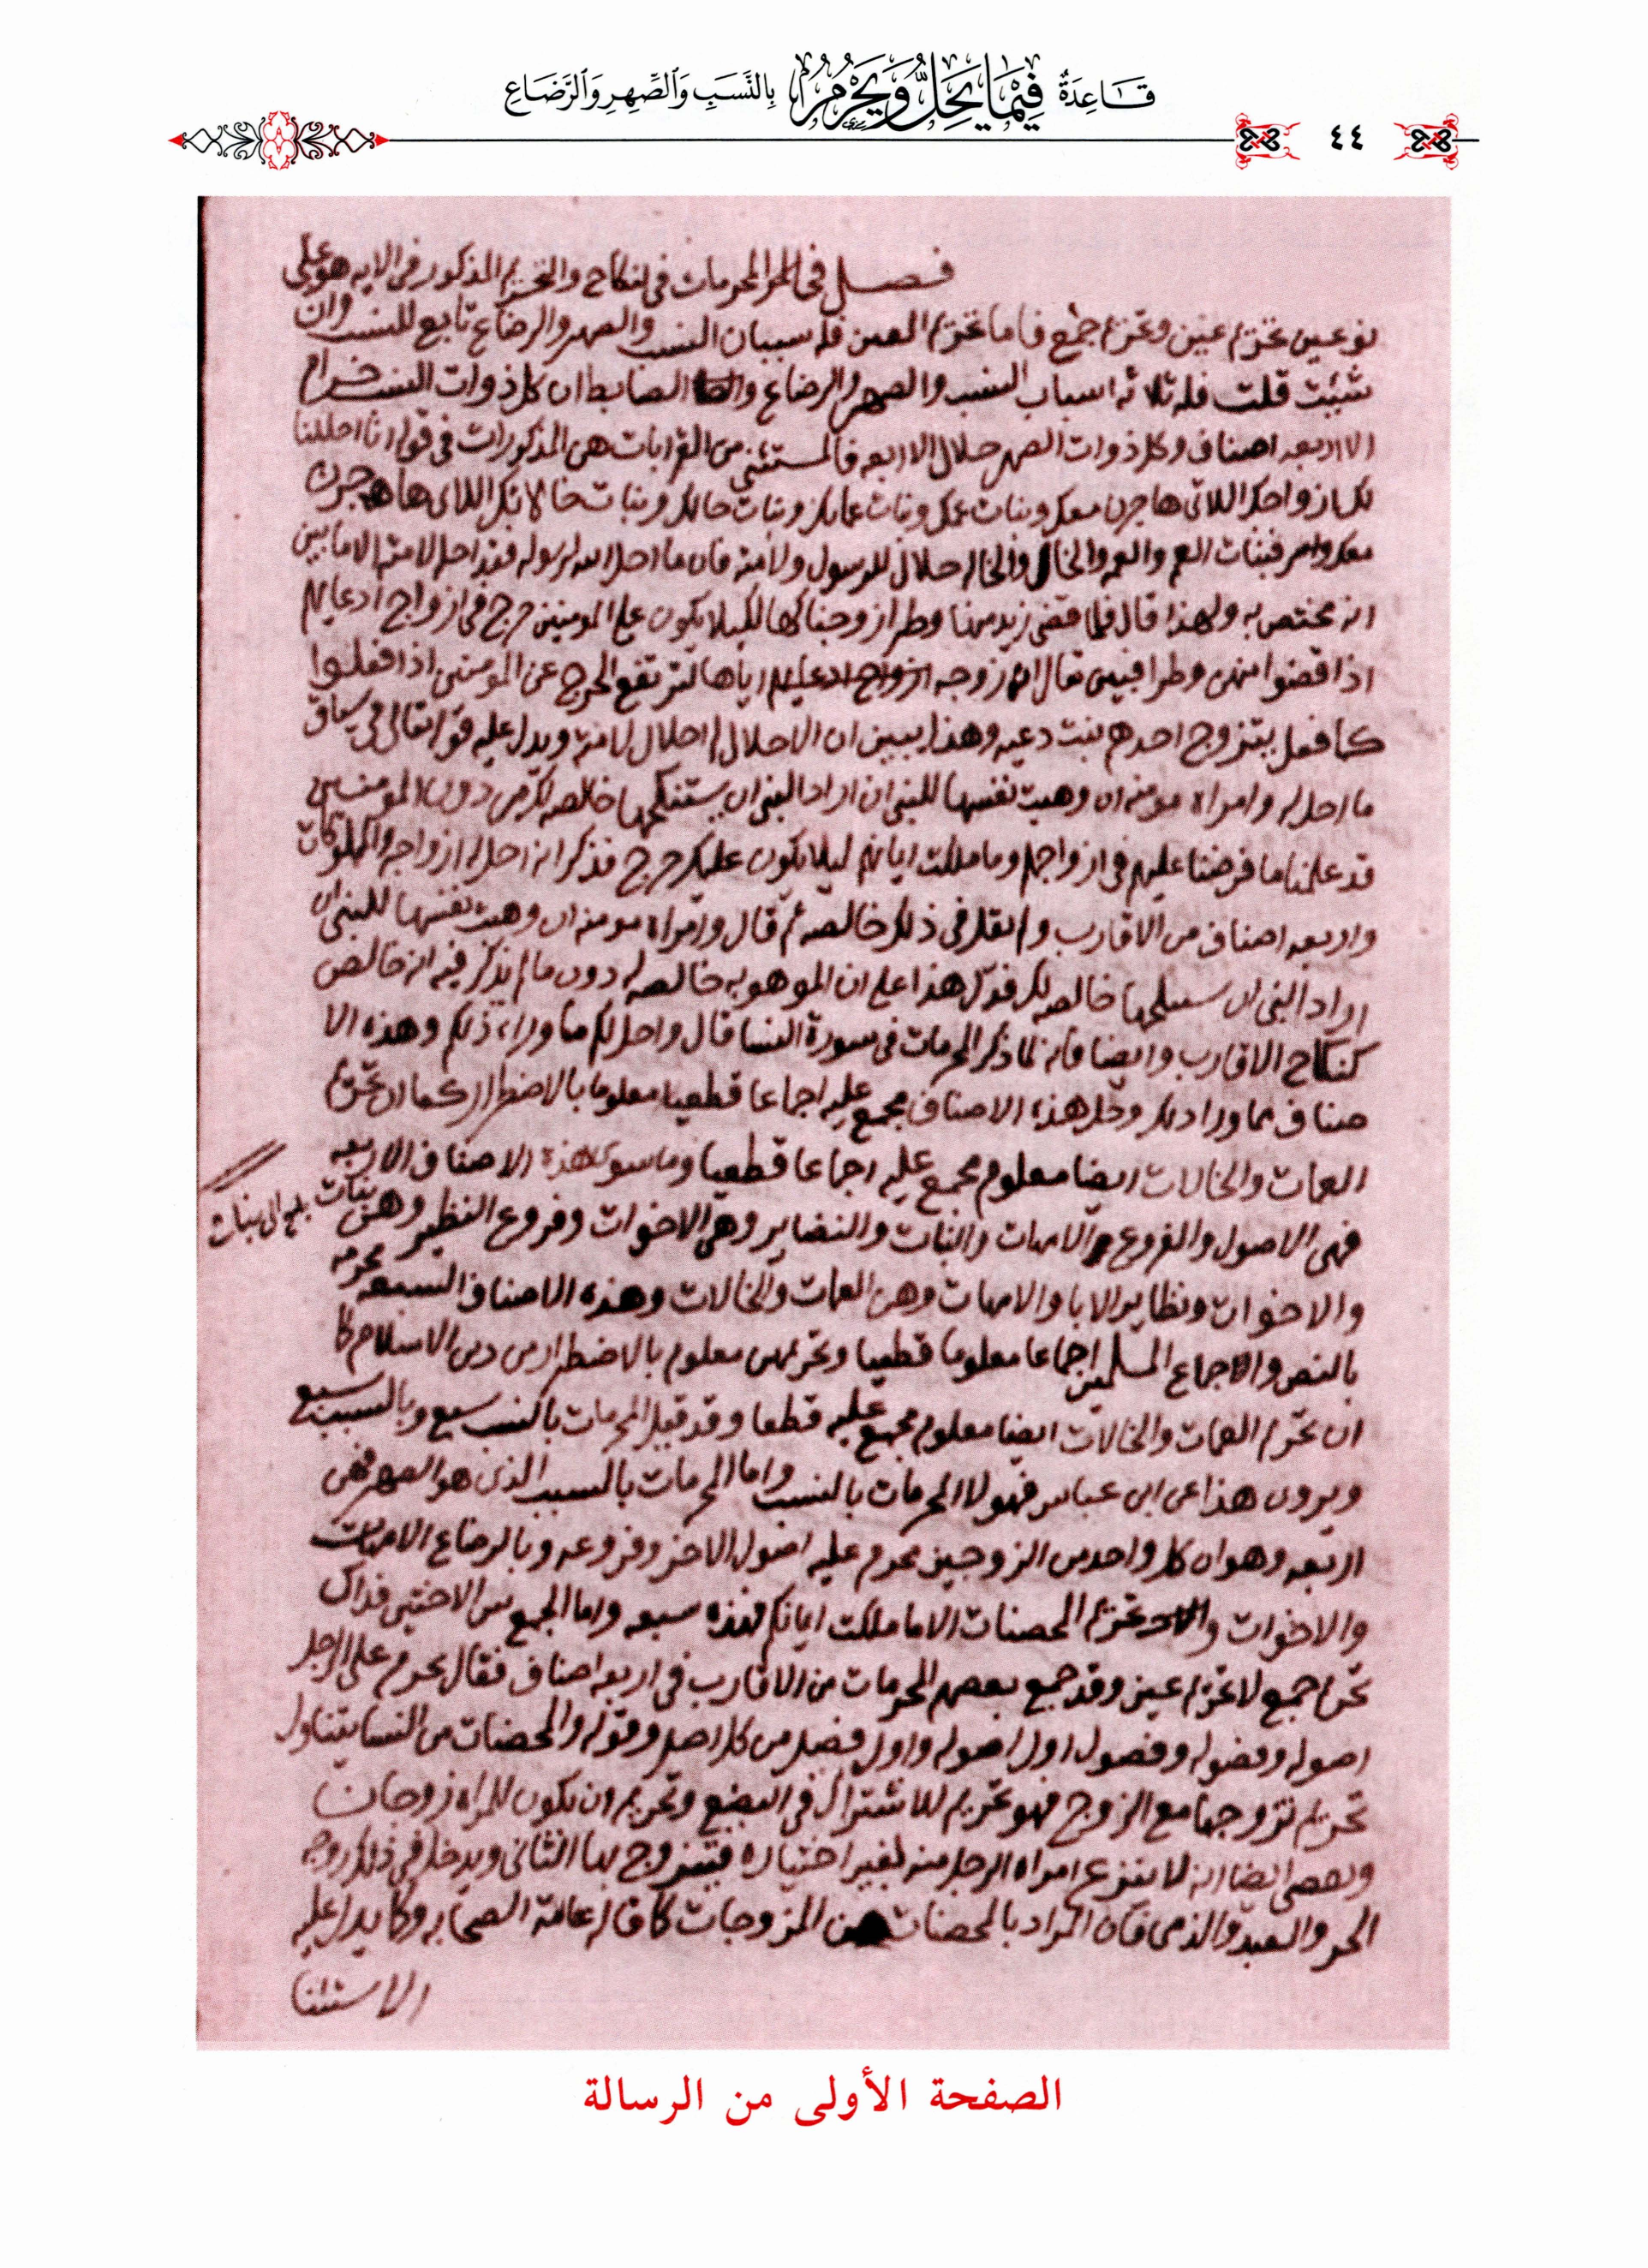 قَاعِدَةٌ فِيْمَا يَحِلُّ وَيَحْرُمُ بِالنَّسَبِ وَالصِّهِرِ وَالرَّضَاعِ
٤٤
فصل في المحرمات في النكاح والتحريم المذكور في الايه هو على
نوعين تحريم عين وتحريم جمع فاما تحريم العين فله سببان النسب والصهر والرضاع تابع للنسب وان
شئت قلت فله ثلاثه اسباب النسب والصهر والرضاع والضابط ان كل ذوات النسب حرام
الا اربعه اصناف وكل ذوات الصهر حلال الا اربعه فالمستثنى من القرابات هن المذكورات في قوله انا احللنا
لك ازواجك اللاتي هاجرن معك وبنات عمك وبنات عماتك وبنات خالك وبنات خالاتك اللاتي هاجرن
معك فبنات العم والعمه والخال والخاله حلال للرسول ولامته فان ما احل الله لرسوله فقد احل لامته الا ما بين
انه مختص به ولهذا قال فلما قضى زيد منها وطرا زوجناكها لكيلا يكون على المومنين حرج في ازواج ادعيايهم
اذا قضوا منهن وطرا فبين تعالى انه زوجه اياها لترتفع الحرج عن المومنين اذا فعلوا
كما فعل يتزوج احدهم بنت دعيه وهذا يبين ان الاحلال له احلال لامته ويدل عليه قوله تعالى في سياق
ما احل له وامراه مومنه ان وهبت نفسها للنبي ان اراد النبي ان يستنكحها خالصه لك من دون المومنين
قد علمنا ما فرضنا عليهم في ازواجهم وما ملكت ايمانهم ليلا يكون عليك حرج فذكر انه احل له ازواجه والمملوكات
واربعه اصناف من الاقارب ولم يقل في ذلك خالصه ثم قال وامراه مومنه ان وهبت نفسها للنبي ان
اراد النبي ان يستنكحها خالصه لك فدل هذا على ان الموهوبه خالصه له دون ما لم يذكر فيه انه خالص
كنكاح الاقارب وايضا فانه لما ذكر المحرمات في سورة النسا قال واحل لكم ما وراء ذلكم وهذه الا
صناف مما ورا ذلك وحل هذه الاصناف مجمع عليه اجماعا قطعيا معلوما بالاضطرار كما ان تحريم
العمات والخالات ايضا معلوم مجمع عليه اجماعا قطعيا وما سوى هذه الاصناف الاربعه
فهي الاصول والفروع الامهات والبنات والنضاير وهن الاخوات وفروع النظير وهن بنات
والاخوات ونظاير الابا والامهات وهن العمات والخالات وهذه الاصناف السبعه محرمه
بالنص والاجماع المسلمين اجماعا معلوما قطعيا وتحريمهن معلوم بالاضطرار من دين الاسلام كما
ان تحريم العمات والخالات ايضا معلوم مجمع عليه قطعا وقد قيل المحرمات بالنسب سبع وبالسبب سبع
ويروون هذا عن ابن عباس فهولا المحرمات بالنسب واما المحرمات بالسبب الذي هو الصهر فهي
اربعه وهو ان كل واحد من الزوجين محرم عليه اصول الاخر وفروعه وبالرضاع الامهات
والاخوات وتحريم المحصنات الا ما ملكت ايمانكم فهذه سبعه واما الجمع بين الاختين فذاك
تحريم جمع لا تحريم عين وقد جمع بعضهم المحرمات من الاقارب في اربعه اصناف فقال يحرم على الرجل
اصوله وفصوله وفصول اول اصوله واول فصل من كل اصل وقوله والمحصنات من النسا يتناول
تحريم تزوجها مع الزوج فهو تحريم للاشتراك في البضع وتحريم ان يكون للمراه زوجان
ايضا انه لا ينتزع امراه الرجل منه لغير اختياره فيتزوج بها الثاني ويدخل في ذلك زوجه
الحر والعبد والذمي فان المراد بالمحصنات هن المزوجات كما قاله عامة الصحابه وكما يدل عليه
الاستثنا
الصفحة الأولى من الرسالة